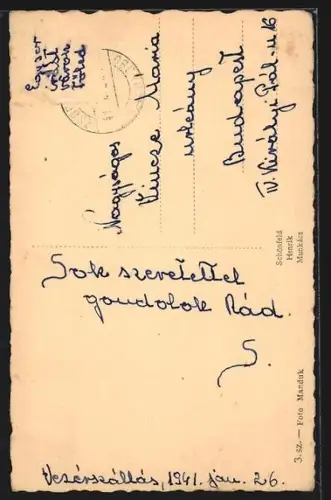 Egyszer
volt
város
Nagyságos
Vincze Mária
urleány
Budapest
IV. Királyi Pál-u 16
Sok szeretettel
gondolok Rád.
S.
Vezérszállás, 1941. jan. 26.
Schönfeld
Henrik
Munkács
3. sz. — Foto Manduk